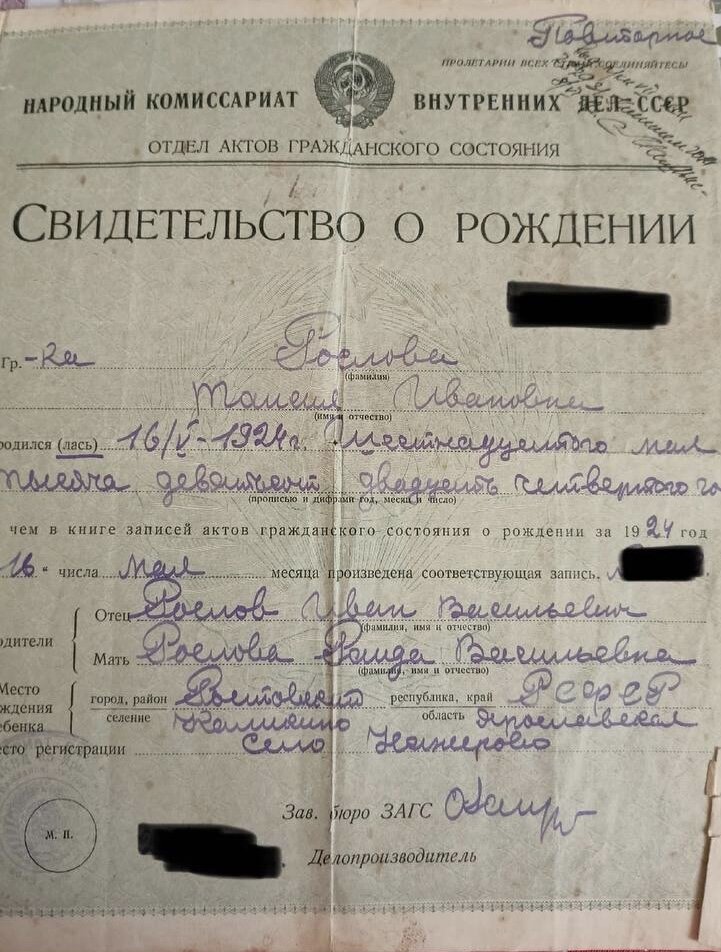 Повторное
ПРОЛЕТАРИИ ВСЕХ СТРАН, СОЕДИНЯЙТЕСЬ!
НАРОДНЫЙ КОМИССАРИАТ ВНУТРЕННИХ ДЕЛ СССР
ОТДЕЛ АКТОВ ГРАЖДАНСКОГО СОСТОЯНИЯ
СВИДЕТЕЛЬСТВО О РОЖДЕНИИ
Гр.-ка Рослова
(фамилия)
Таисия Ивановна
(имя и отчество)
родился (лась) 16/V-1924г. Шестнадцатого мая
тысяча девятьсот двадцать четвертого го
(прописью и цифрами год, месяц и число)
чем в книге записей актов гражданского состояния о рождении за 1924 год
16 числа мая месяца произведена соответствующая запись.
Отец Рослов Иван Васильевич
(фамилия, имя и отчество)
одители
Мать Рослова Фаида Васильевна
(фамилия, имя и отчество)
Место город, район Ростовский республика, край РСФСР
ждения селение область Ярославская
ебенка
сто регистрации Село
Зав. бюро ЗАГС
М. П.
Делопроизводитель